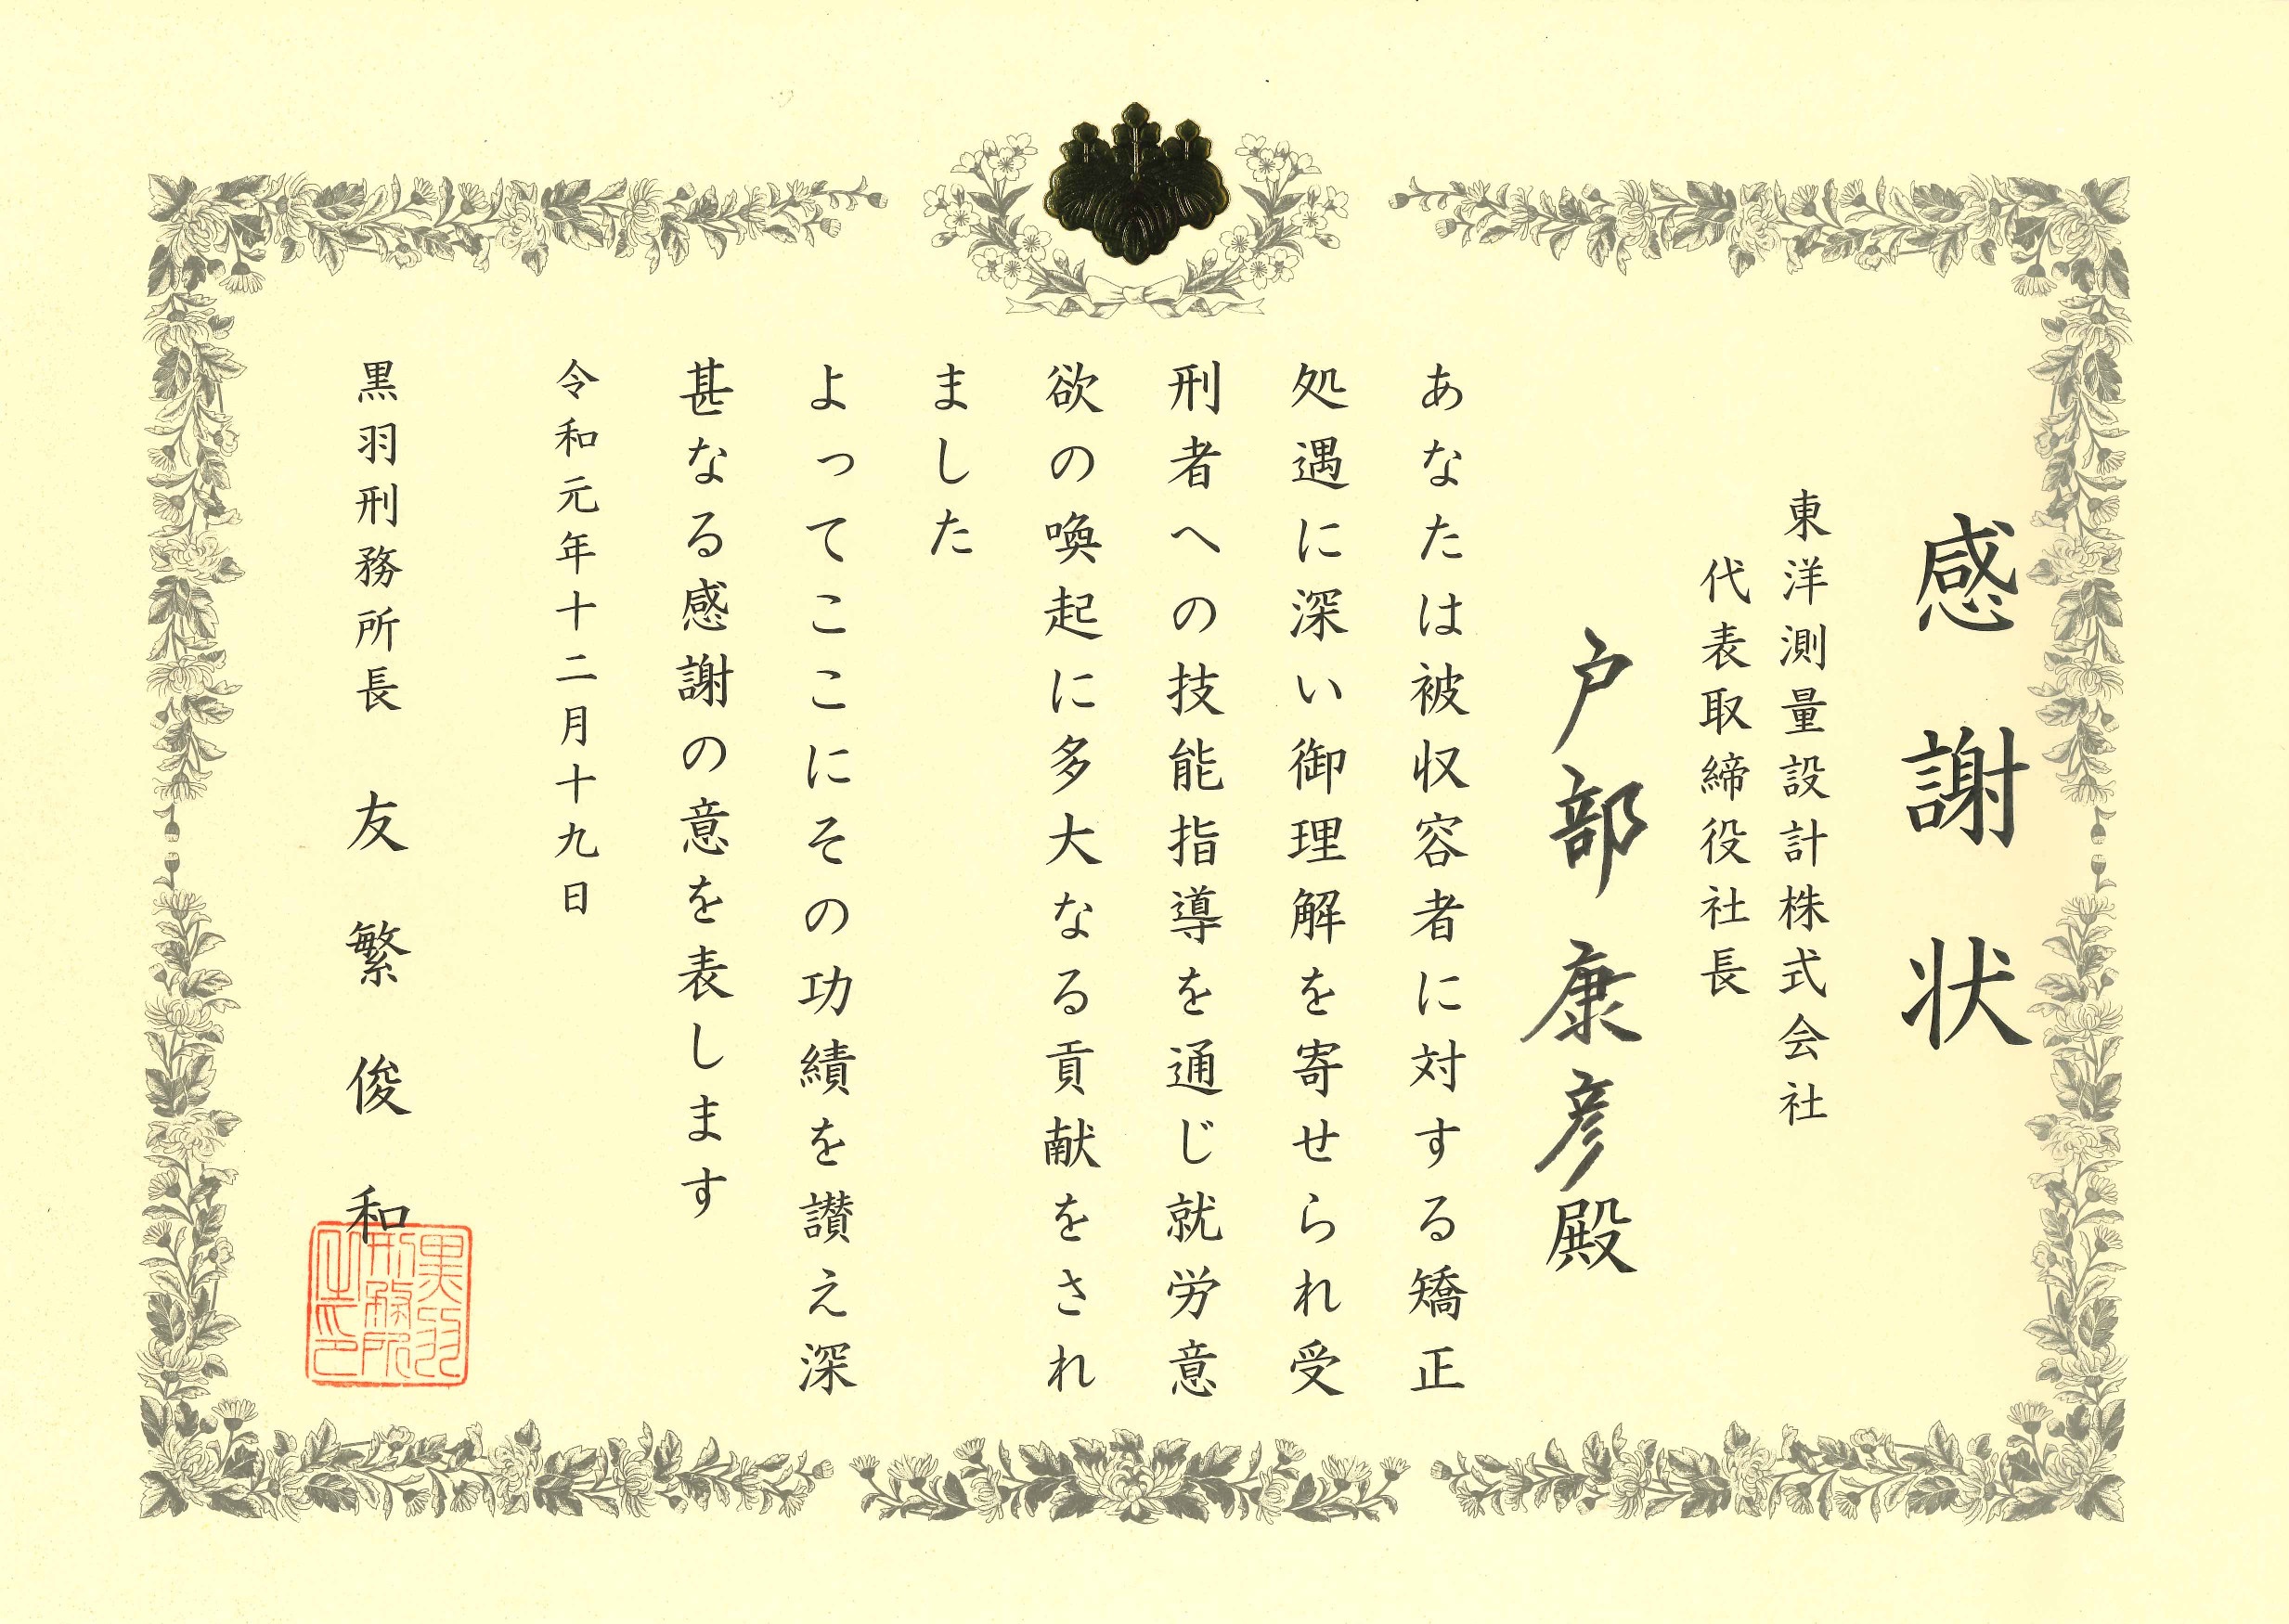 感謝状
東洋測量設計株式会社
代表取締役社長
戸部康彦殿
あなたは被収容者に対する矯正
処遇に深い御理解を寄せられ受
刑者への技能指導を通じ就労意
欲の喚起に多大なる貢献をされ
ました
よってここにその功績を讃え深
甚なる感謝の意を表します
令和元年十二月十九日
黒羽刑務所長 友繁俊和
黒羽
刑務所
之印